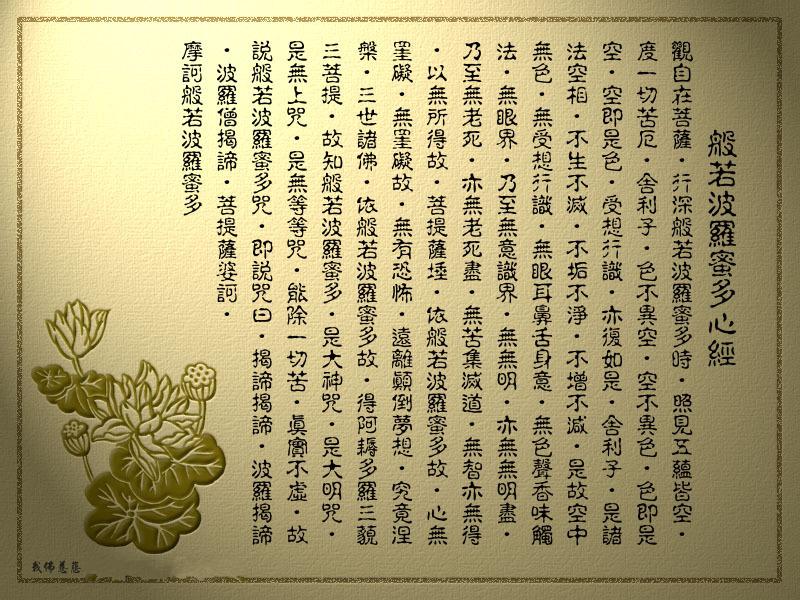 般若波羅蜜多心經
觀自在菩薩・行深般若波羅蜜多時・照見五蘊皆空・
度一切苦厄・舍利子・色不異空・空不異色・色即是
空・空即是色・受想行識・亦復如是・舍利子・是諸
法空相・不生不滅・不垢不淨・不增不減・是故空中
無色・無受想行識・無眼耳鼻舌身意・無色聲香味觸
法・無眼界・乃至無意識界・無無明・亦無無明盡・
乃至無老死・亦無老死盡・無苦集滅道・無智亦無得
・以無所得故・菩提薩埵・依般若波羅蜜多故・心無
罣礙・無罣礙故・無有恐怖・遠離顛倒夢想・究竟涅
槃・三世諸佛・依般若波羅蜜多故・得阿耨多羅三藐
三菩提・故知般若波羅蜜多・是大神咒・是大明咒・
是無上咒・是無等等咒・能除一切苦・眞實不虛・故
說般若波羅蜜多咒・即說咒曰・揭諦揭諦・波羅揭諦
・波羅僧揭諦・菩提薩婆訶・
摩訶般若波羅蜜多
我佛慈悲